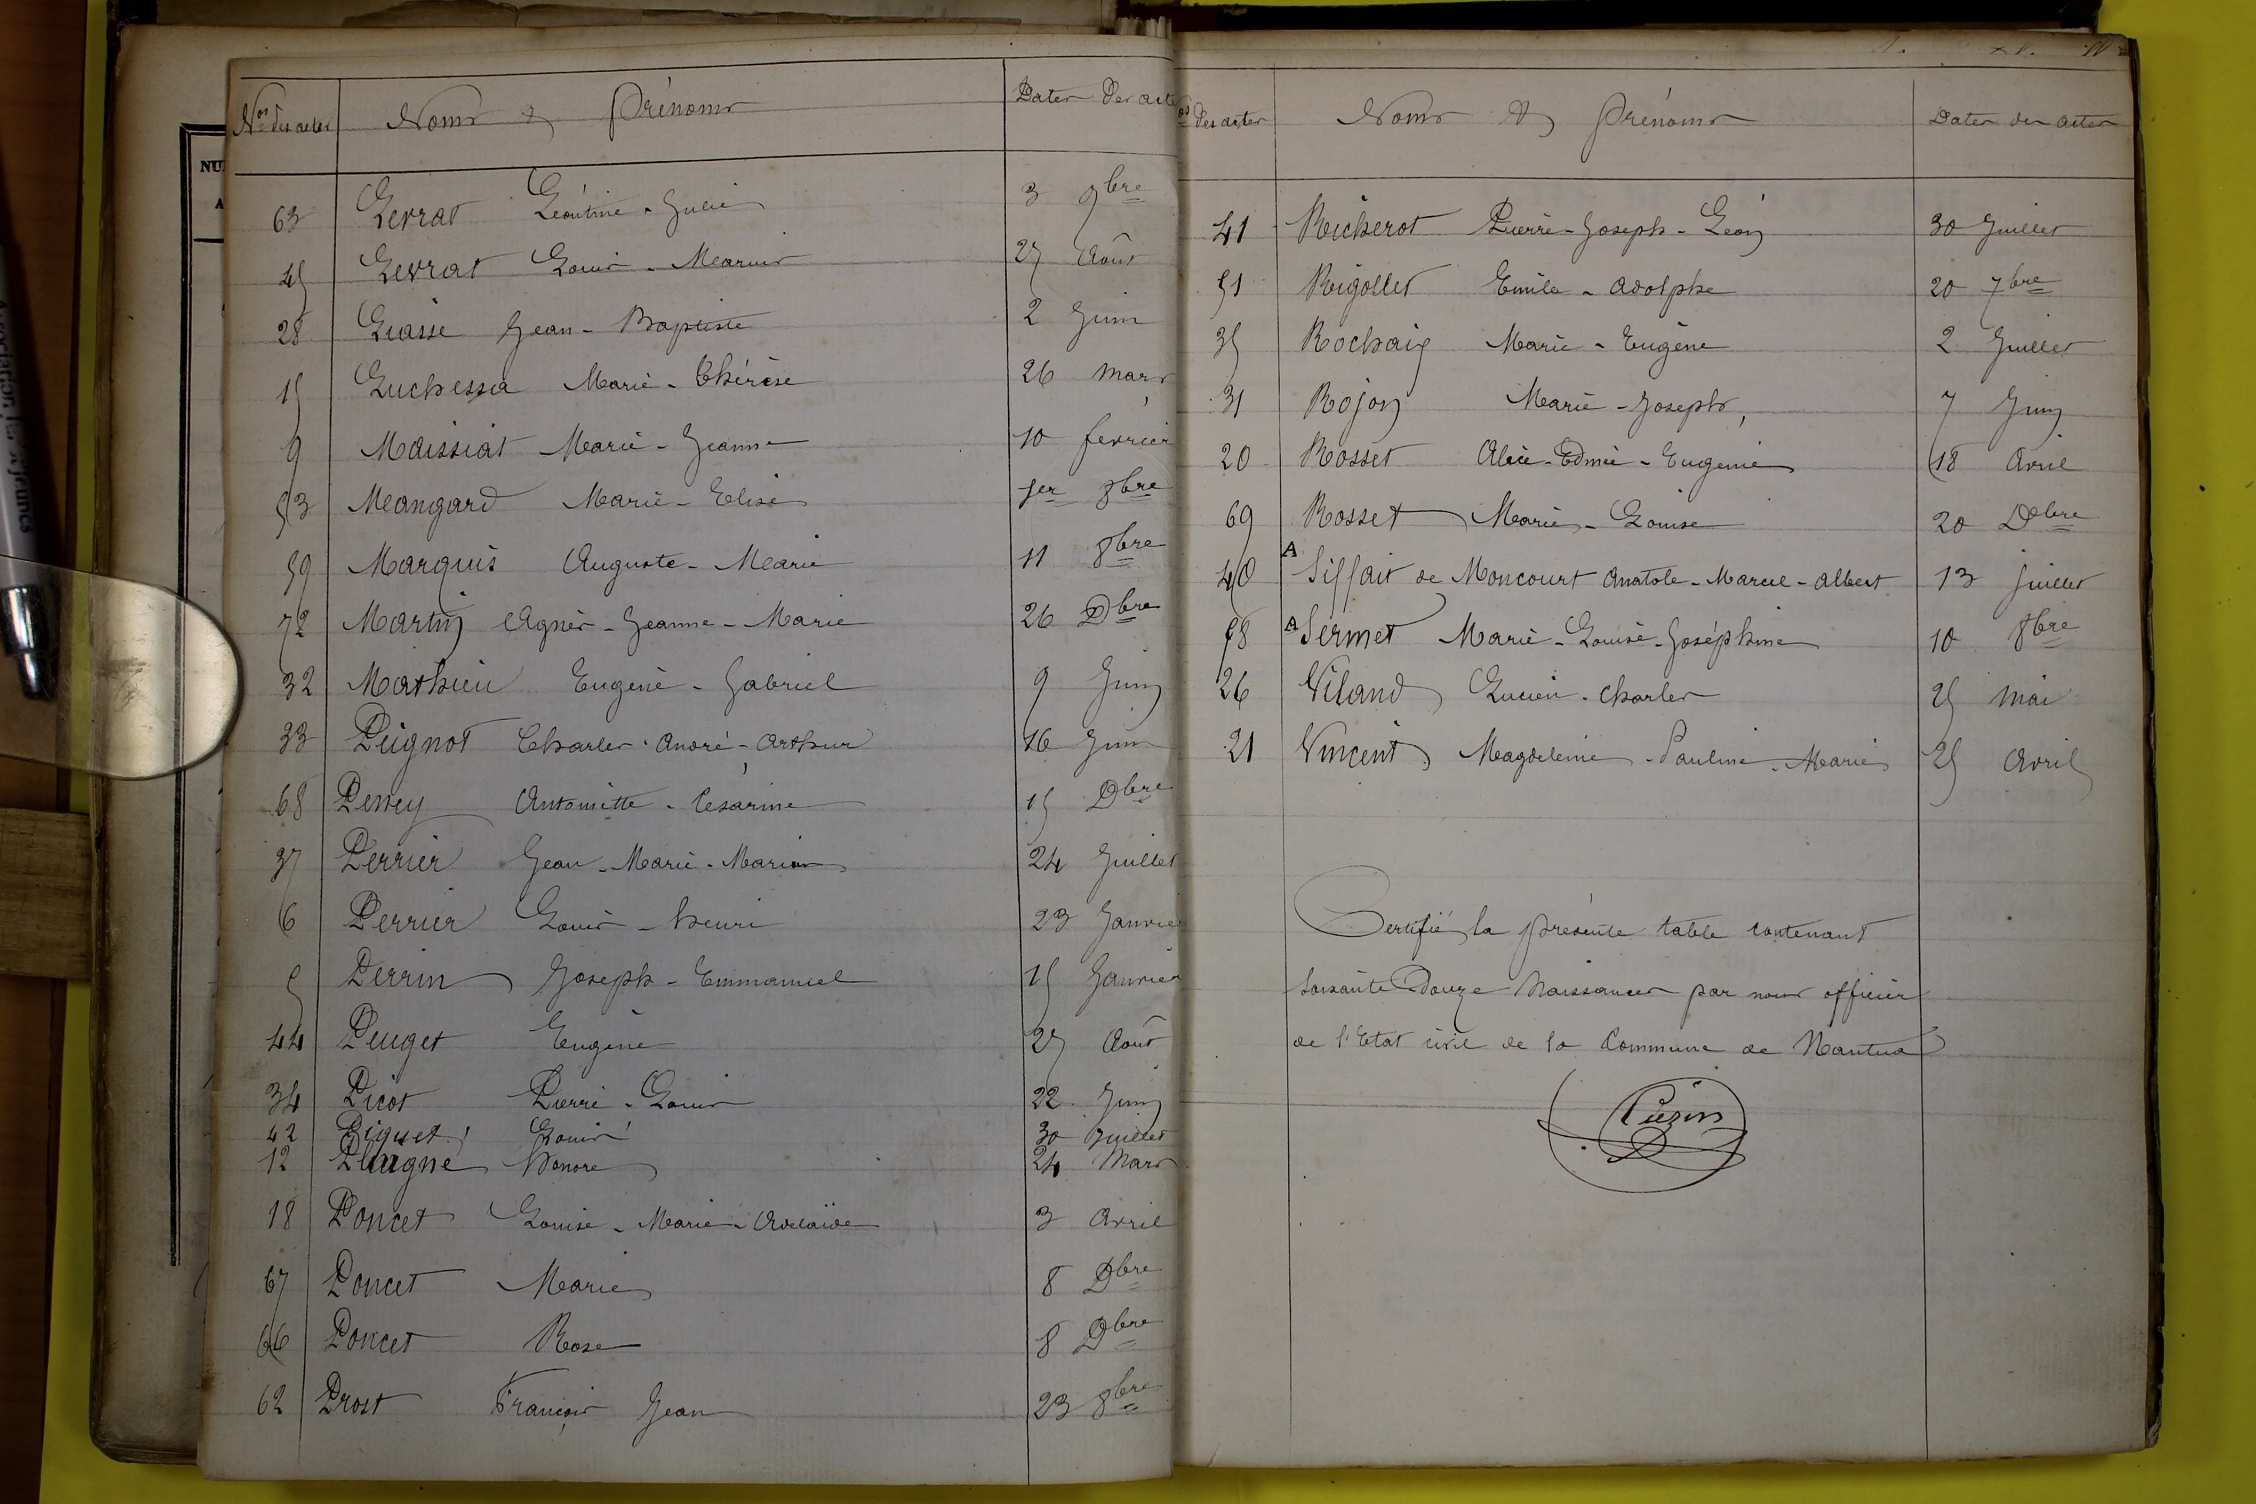 Nos des actes Noms & Prénoms Dates des actes
63 Levrat Léontine - Julie 3 9bre
45 Levrat Louis - Marius 27 Août
28 Liasse Jean - Baptiste 2 Juin
15 Luchessa Marie - Thérèse 26 Mars
9 Maissiat Marie - Jeanne 10 février
53 Mangard Marie - Elise 1er 8bre
59 Marquis Auguste - Marie 11 8bre
72 Martin Agnès - Jeanne - Marie 26 Dbre
32 Mathieu Eugène - Gabriel 9 Juin
33 Peignot Charles - André - Arthur 16 Juin
68 Antoinette - Césarine 15 Dbre
37 Perrier Jean - Marie - Marion 24 Juillet
6 Perrier Louis - Henri 23 Janvier
5 Perrin Joseph - Emmanuel 15 Janvier
44 Peuget Eugène 27 Août
34 Picot Pierre - Louis 22 Juin
42 Piquet Louis 30 Juillet
12 Honoré 24 Mars
18 Poncet Louise - Marie - Adelaïde 3 Avril
67 Poncet Marie 8 Dbre
66 Poncet Rose 8 Dbre
62 Prost François Jean 23 8bre
os des actes Noms & Prénoms Dates des actes
41 Richerot Pierre - Joseph - Léon 30 Juillet
51 Rigollet Emile - Adolphe 20 7bre
35 Rochaix Marie - Eugène 2 Juillet
31 Rojon Marie - Joseph 7 Juin
20 Rosset Alice - Edmée - Eugenie 18 Avril
69 Rosset Marie - Louise 20 Dbre
40 A Siffait de Moncourt Anatole - Marcel - Albert 13 Juillet
58 A Sermet Marie - Louise - Joséphine 10 8bre
26 Viland Lucien - Charles 25 Mai
21 Vincent Magdeleine - Pauline - Marie 25 Avril
Certifié la présente table contenant
soixante Douze Naissances par nous officier
de l'Etat civil de la Commune de Nantua
Cuzin